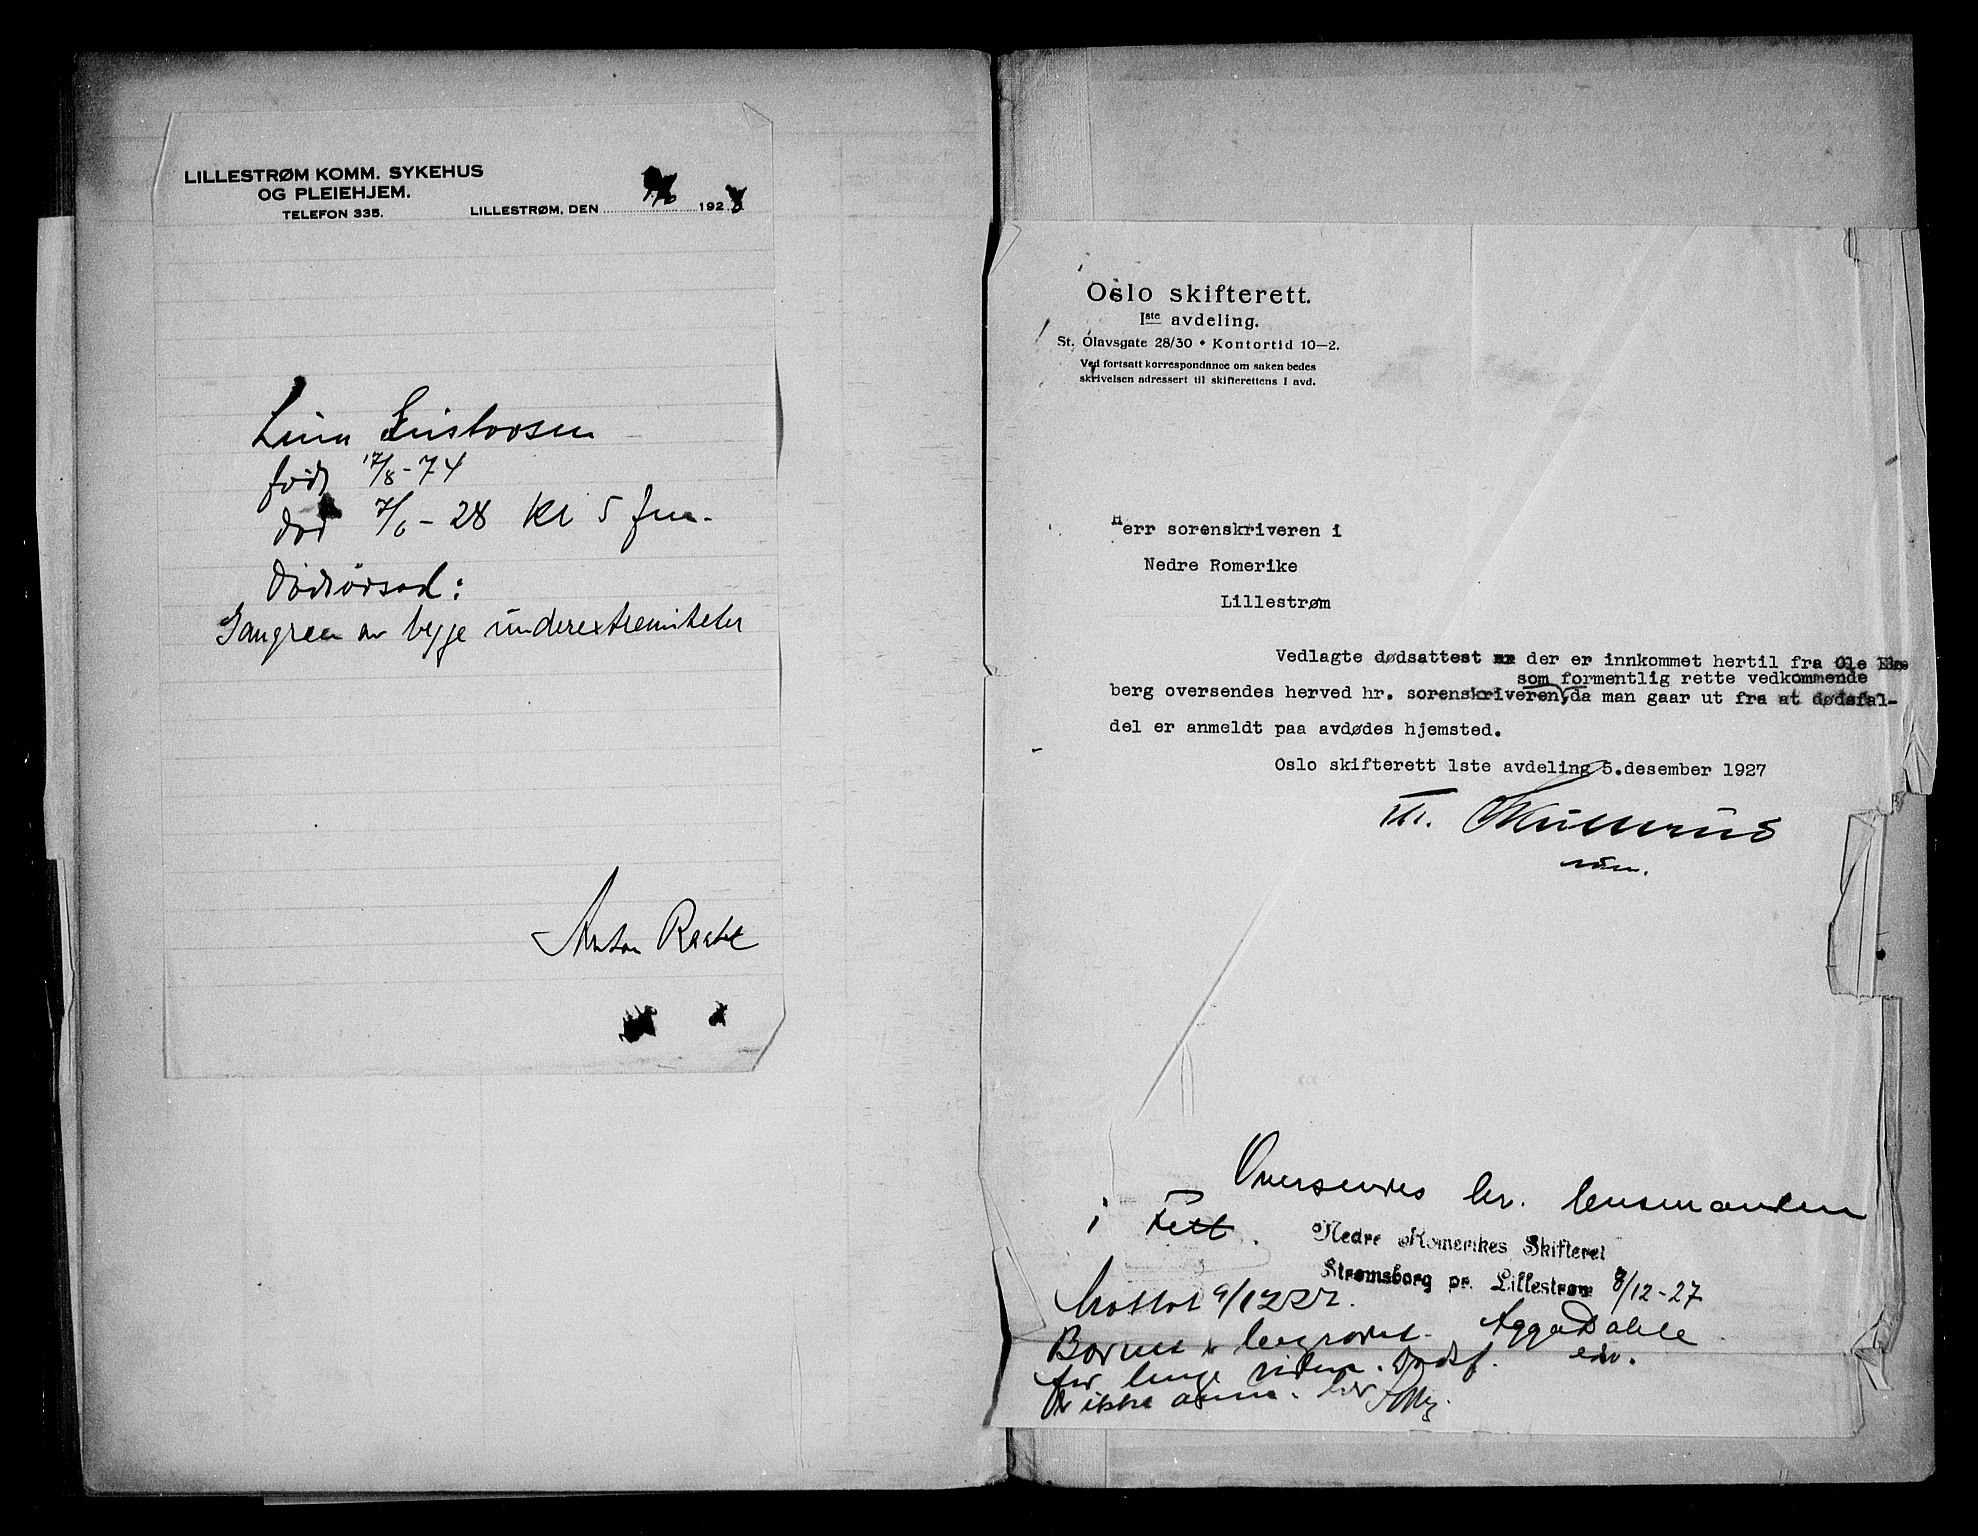 LILLESTRØM KOMM. SYKEHUS
OG PLEIEHJEM.
TELEFON 335.
LILLESTRØM, DEN 7/6 1928
Lina Gustavsen
født 17/8-74
død 7/6-28 kl 5 fm.
Dødsorsad:
Gangren av begge underextremiteter
Anton Raabe
Oslo skifterett.
Iste avdeling.
St. Olavsgate 28/30 • Kontortid 10—2.
Ved fortsatt korrespondance om saken bedes
skrivelsen adressert til skifterettens I avd.
Herr sorenskriveren i
Nedre Romerike
Lillestrøm
Vedlagte dødsattest der er innkommet hertil fra Ole
som formentlig rette vedkommende
berg oversendes herved hr. sorenskriveren, da man gaar ut fra at dødsfal-
del er anmeldt paa avdødes hjemsted.
Oslo skifterett 1ste avdeling 5.desember 1927
Oversendes hr. lensmanden
i Fett.
Nedre Romerikes Skifteret
Strømsborg pr. Lillestrøm 8/12-27
Mottat 9/12 27.
Aagə Dahle
Barnet er begravet
for lenge siden. Dødsf.
er ikke anm. her